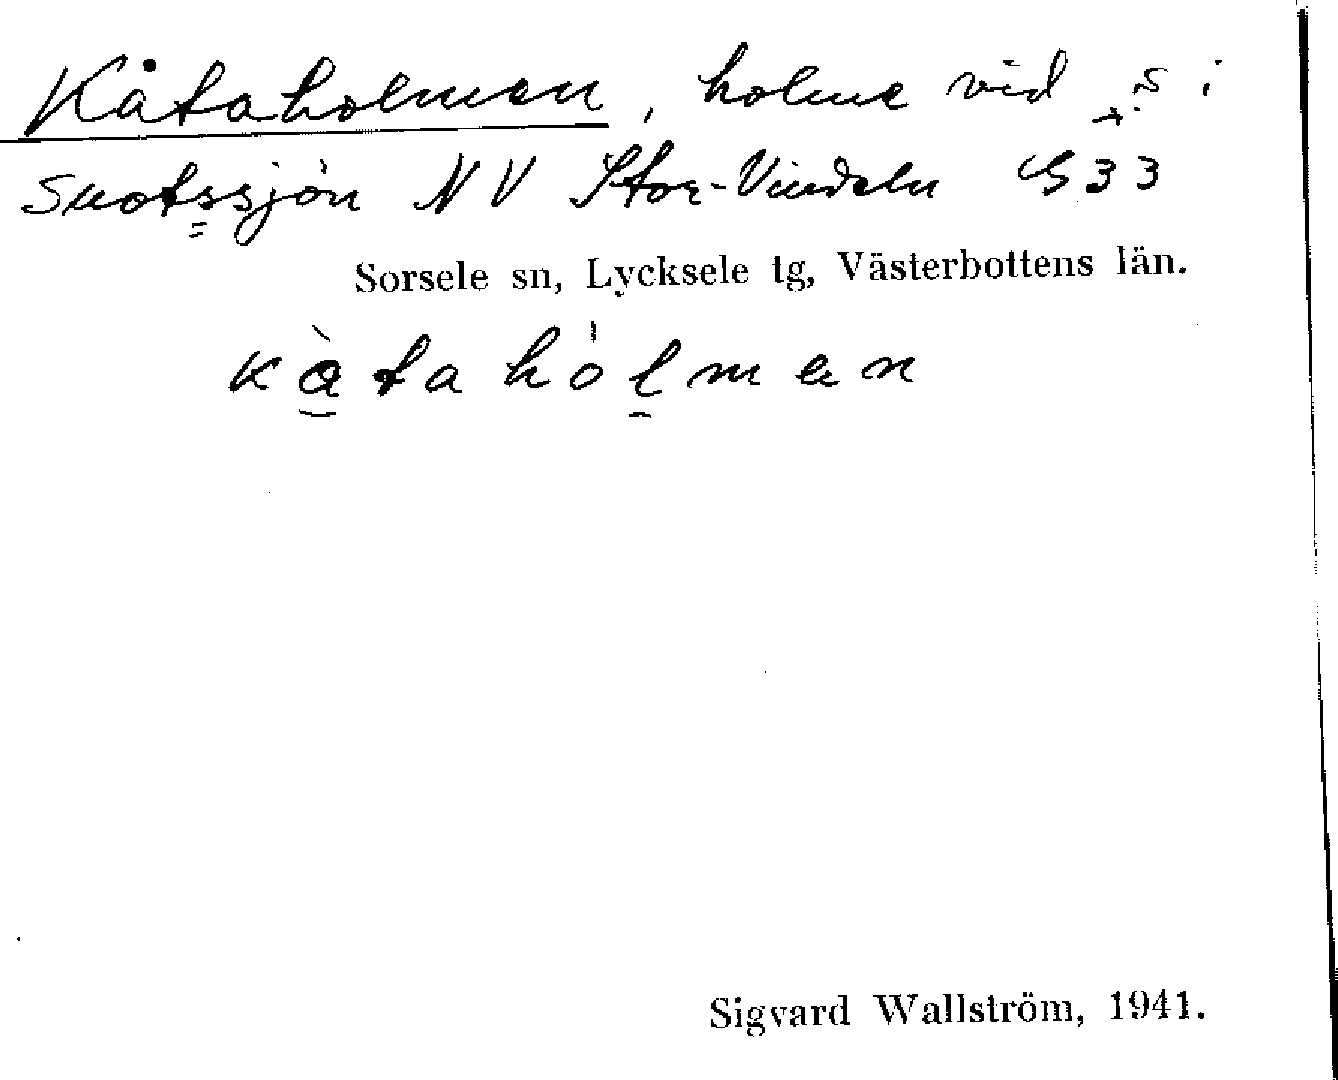 Kåtaholmen, holme vid s i
Snotssjön NV Stor-Vindeln G33
Sorsele sn, Lycksele tg, Västerbottens län.
kàtahòlmen
Sigvard Wallström, 1941.